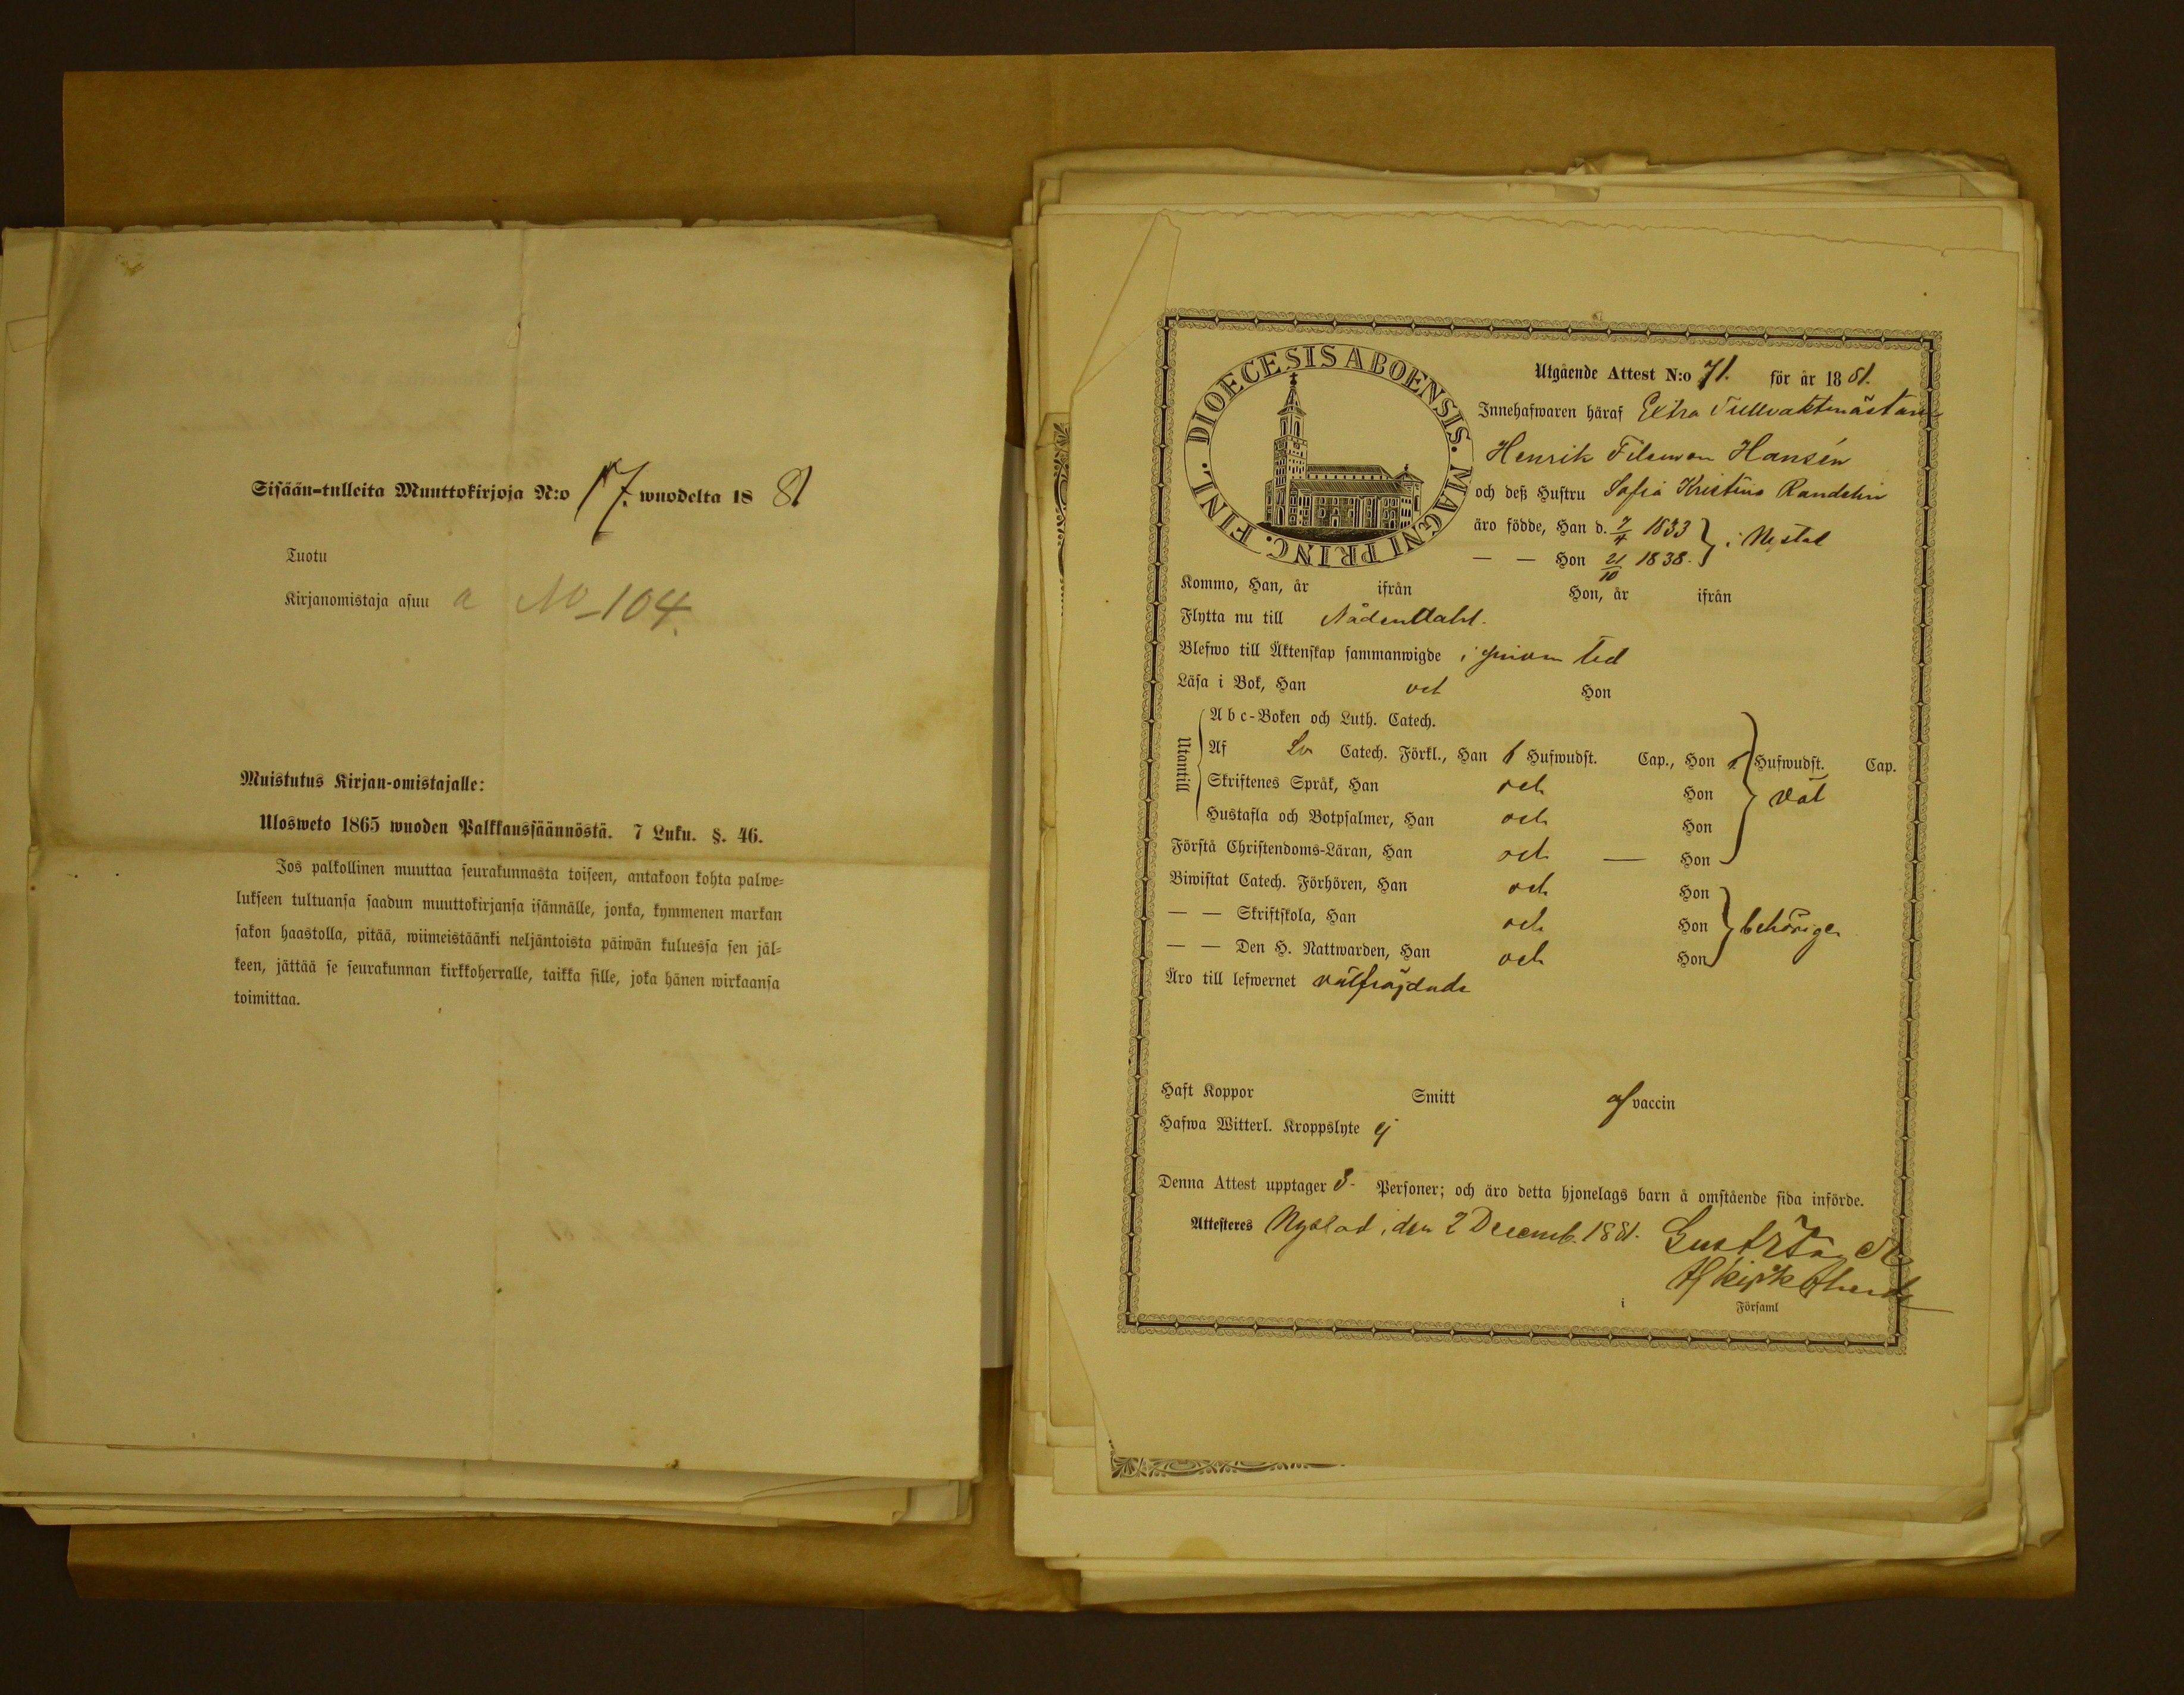 Sisään-tulleita Muuttokirjoja N:o 17. wuodelta 18 81
Tuotu
Kirjanomistaja asuu a No 104.
Muistutus Kirjan-omistajalle:
Ulosweto 1865 wuoden Palkkaussäännöstä. 7 Luku. §. 46.
Jos palkollinen muuttaa seurakunnasta toiseen, antakoon kohta palwe-
lukseen tultuansa saadun muuttokirjansa isännälle, jonka, kymmenen markan
sakon haastolla, pitää, wiimeistäänki neljäntoista päiwän kuluessa sen jäl-
keen, jättää se seurakunnan kirkkoherralle, taikka sille, joka hänen wirkaansa
toimittaa.
DIOECESIS ABOENSIS. MAGNI PRINC. FINL.
Utgående Attest N:o 71. för år 18 81.
Innehafwaren häraf Extra Tullvaktmästaren
Henrik Filemon Hansén
och deß Hustru Sofia Kristina Randelin
äro födde, Han d. 7/4 1833 } i Nystad
— — Hon 21/10 1838.
Kommo, Han, år ifrån Hon, år ifrån
Flytta nu till Nådendahl.
Blefwo till Äktenskap sammanwigde i tid
Läsa i Bok, Han och Hon
Utantill
A b c-Boken och Luth. Catech.
Af Catech. Förkl., Han 6 Hufwudst. Cap., Hon Hufwudst. Cap.
Skriftenes Språk, Han och Hon väl
Hustafla och Botpsalmer, Han och Hon
Förstå Christendoms-Läran, Han och — Hon
Biwistat Catech. Förhören, Han och Hon
— — Skriftskola, Han och Hon behörigen
— — Den H. Nattwarden, Han och Hon
Äro till lefwernet välfräjdade
Haft Koppor Smitt af vaccin
Hafwa Witterl. Kroppslyte ej
Denna Attest upptager 3- Personer; och äro detta hjonelags barn å omstående sida införde.
Attesteres Nystad, den 2 Decemb. 1881.
i Församl